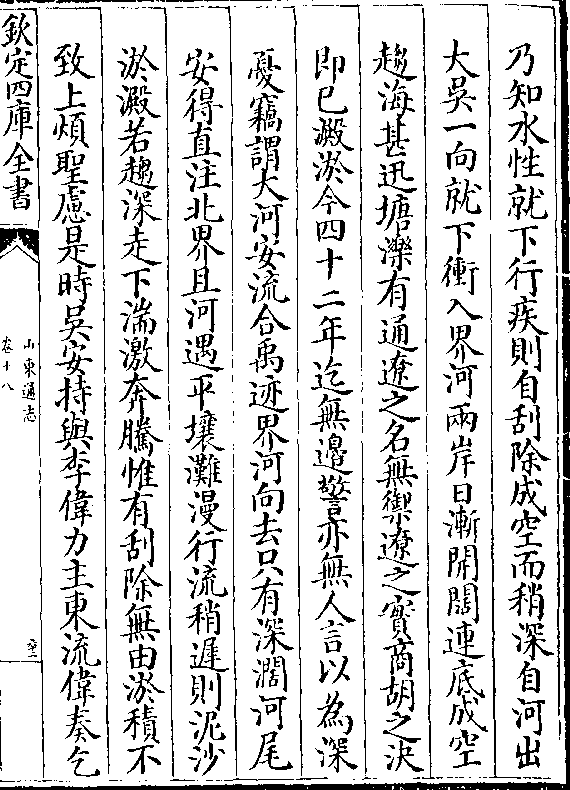 乃知水性就下行疾則自刮除成空而稍深自河出
大吳一向就下衝入界河兩岸日漸開闊連底成空
趨海甚迅塘濼有通遼之名無禦遼之實商胡之決
即已澱淤今四十二年迄無邊警亦無人言以為深
憂竊謂大河安流合禹迹界河向去只有深濶河尾
安得直注北界且河遇平壤灘漫行流稍遲則泥沙
淤澱若趨深走下湍激奔騰惟有刮除無由淤積不
致上煩聖慮是時吳安持與李偉力主東流偉奏乞
欽定四庫全書
山東通志
卷十八